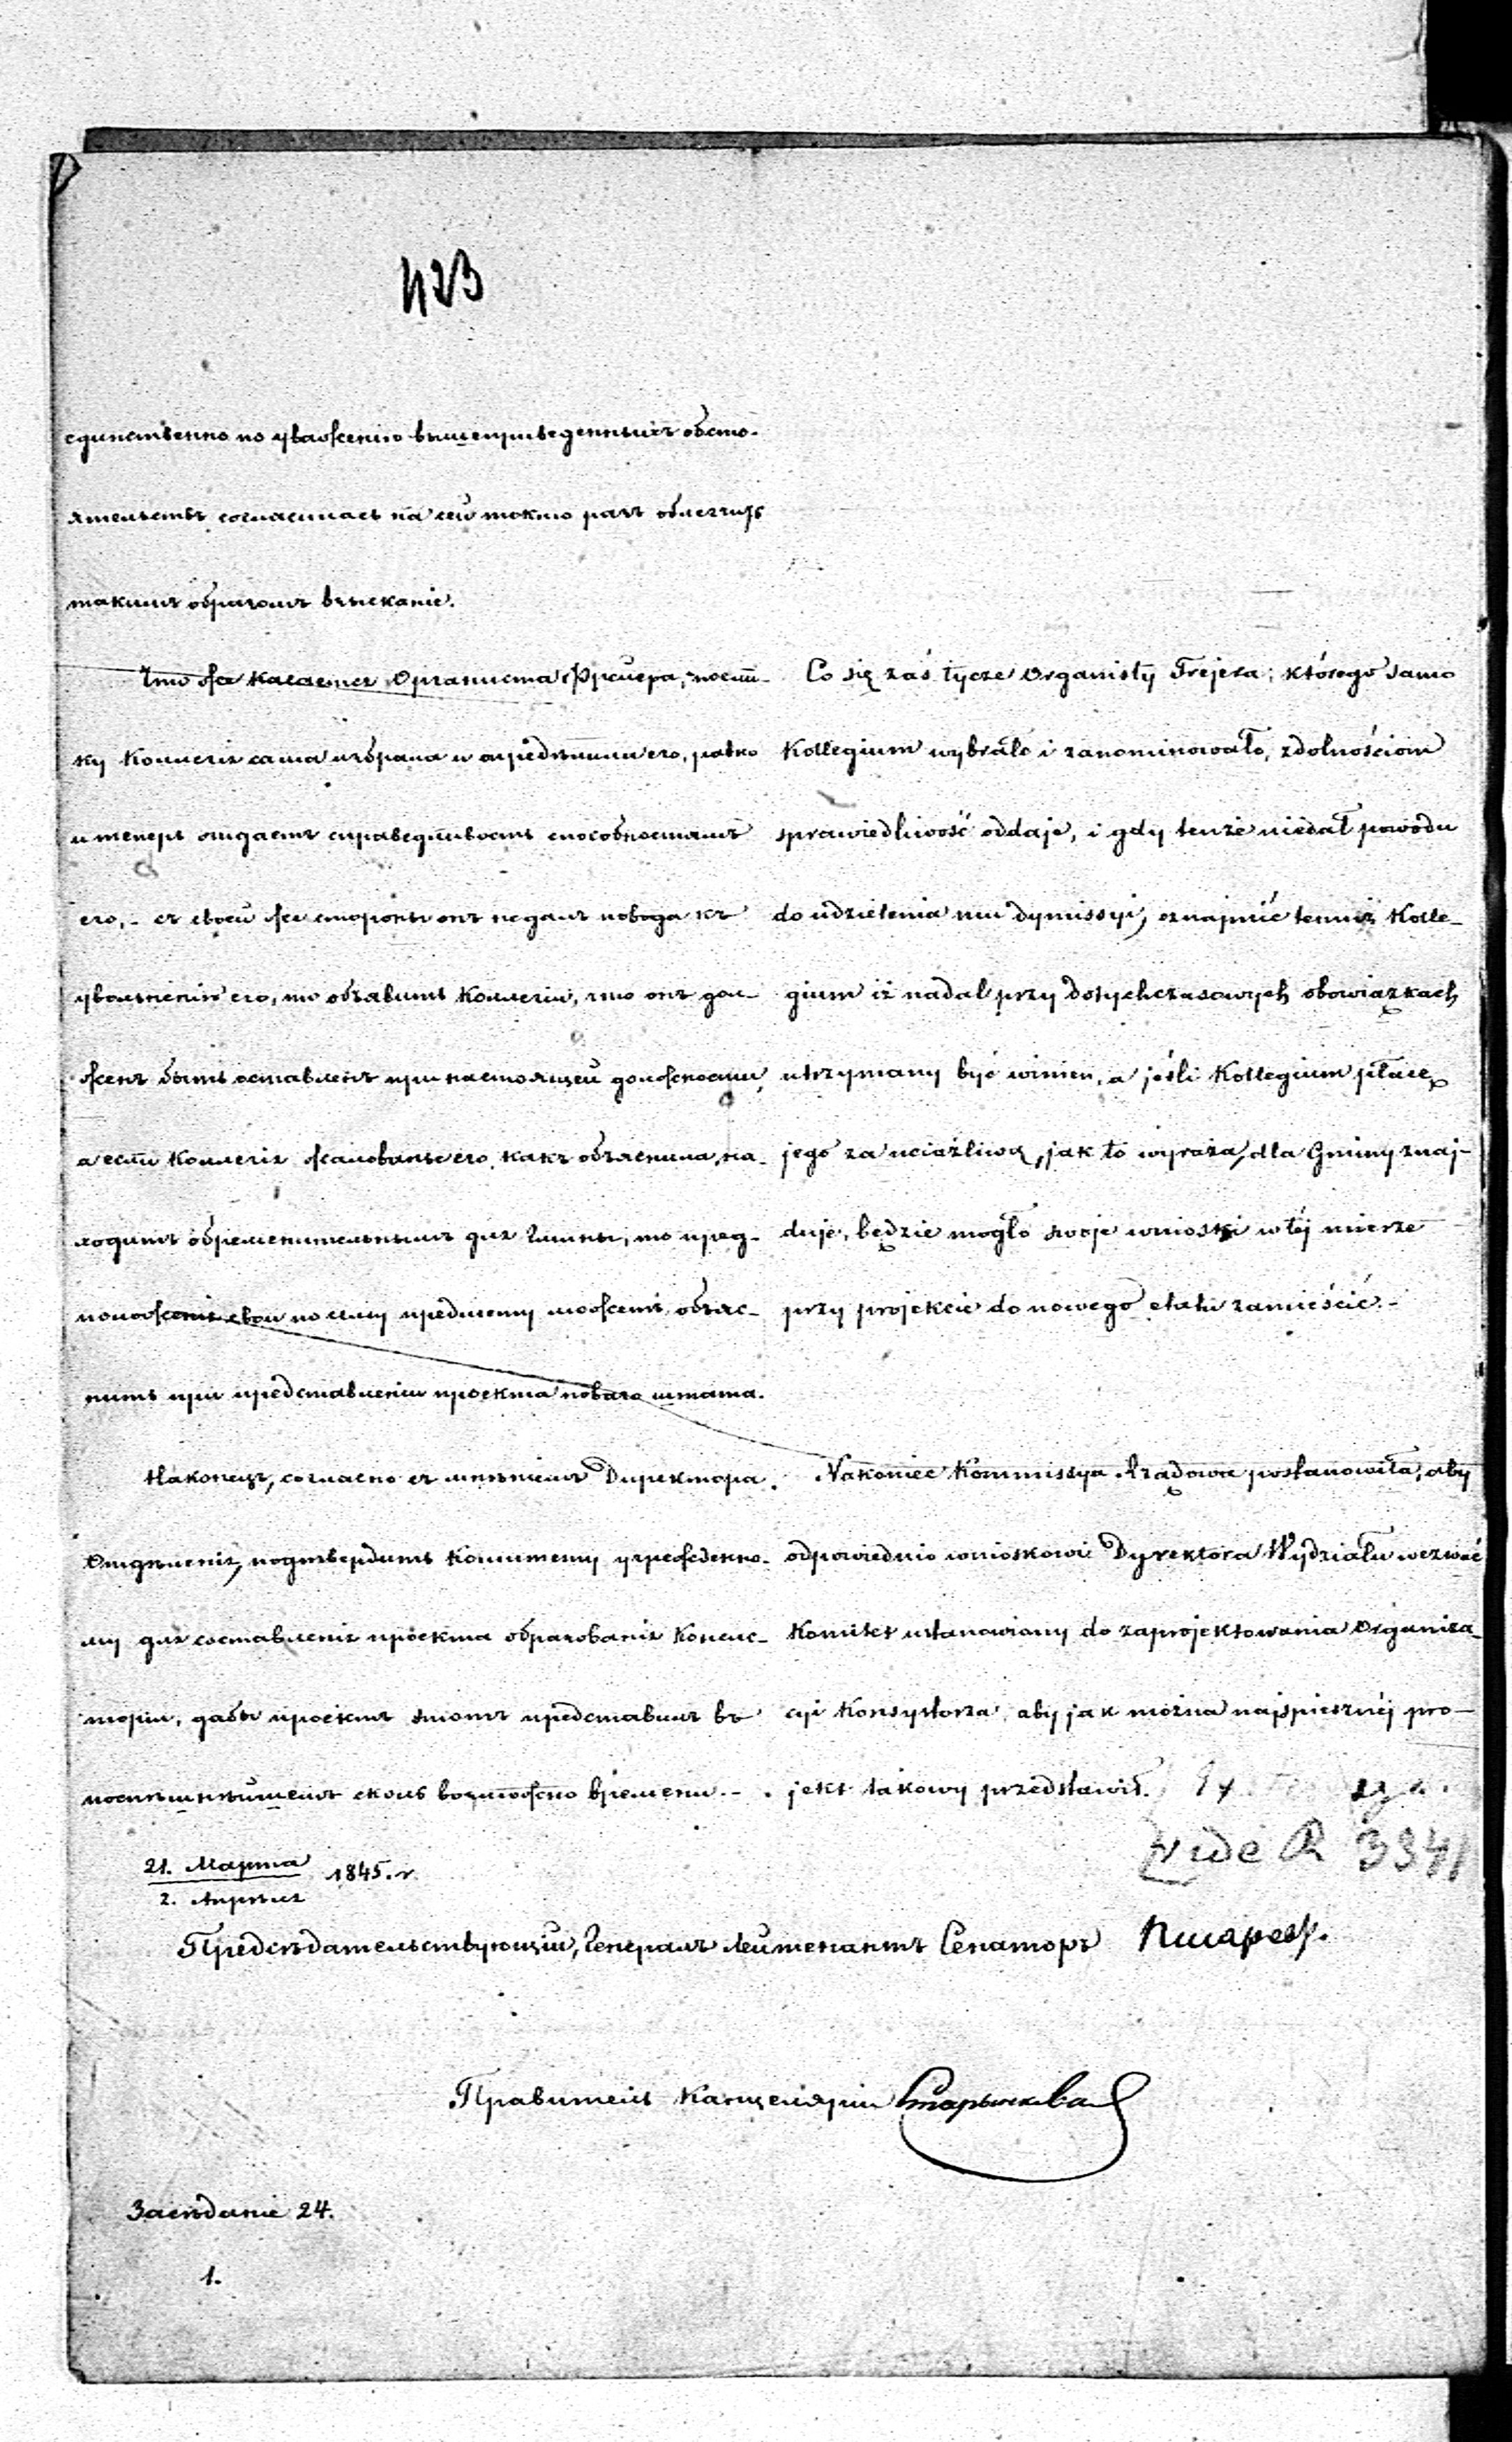 423
единственно по уваженію вышеприведенныхъ обсто-
ятельствъ согласилась на сей токмо разъ облегчить
такимъ образомъ взысканіе.
Что же касается Органиста Фрейера, поели-
ку Коллегія сама избрала и опредѣлила его, равно
и теперь отдаетъ справедливость способностямъ
его, - съ своей же стороны онъ не далъ повода къ
увольненію его, то объявить Коллегіи, что онъ дол-
женъ быть оставленъ при настоящей должности,
а если Коллегія жалованье его, какъ объяснила, на-
ходитъ обременительнымъ для Гмины, то пред-
положенія свои по сему предмету можетъ объяс-
нить при представленіи проекта новаго штата.
Наконецъ, согласно съ мнѣніемъ Директора
Отдѣленія, подтвердить Комитету учрежденно-
му для составленія проекта образованія Консис-
торіи, дабы проектъ этотъ представилъ въ
поспѣшнѣйшемъ сколь возможно времени. -
Co się zaś tycze Organisty Frejera, którego samo
Kollegium wybrało i zanominowało, zdolnościom
sprawiedliwość oddaje, i gdy tenże niedał powodu
do udzielenia mu dymissyi, oznajmić temuż Kolle-
gium iż nadal przy dotychczasowych obowiązkach
utrzymany być winien, a jeśli Kollegium płacę
jego za uciążliwą, jak to wyraża, dla Gminy znaj-
duje, będzie mogło swoje wnioski w téj mierze
przy projekcie do nowego etatu zamieścić. -
Nakoniec Kommissya Rządowa postanowiła, aby
odpowiednio wnioskowi Dyrektora Wydziału wezwać
Komitet ustanowiony do zaprojektowania Organiza-
cyi Konsystorza, aby jak można najspieszniéj pro-
jekt takowy przedstawił.
vide R 3341
21. Марта
2. Апрѣля
1845. г.
Предсѣдательствующій, Генералъ Лейтенантъ Сенаторъ Писаревъ.
Правитель Канцеляріи
Засѣданіе 24.
1.